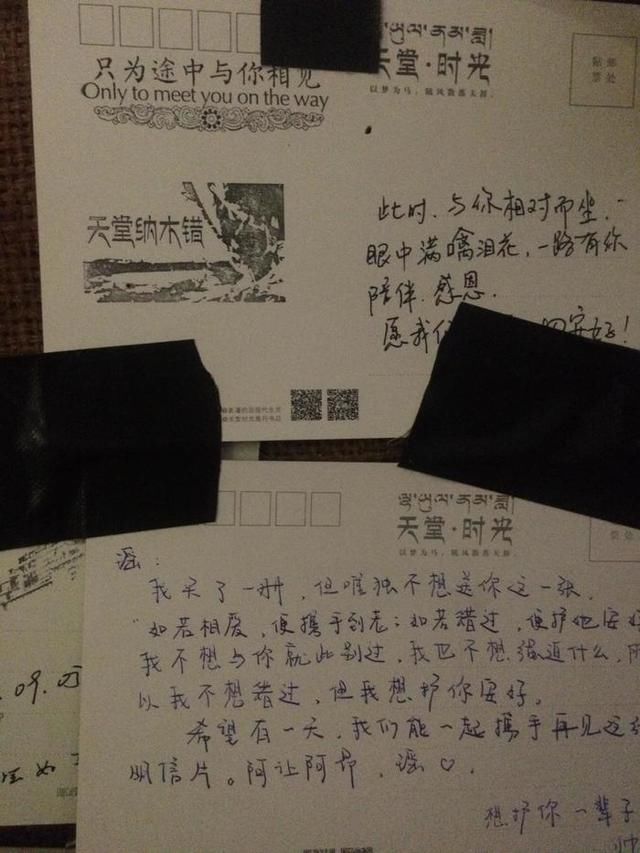 只为途中与你相见
Only to meet you on the way
天堂·时光
以梦为马，随风散落天涯。
贴邮
票处
天堂纳木错
此时、与你相对而坐、
眼中满噙泪花，一路有你
陪伴、感恩。
愿我们 安好！
天堂·时光
以梦为马，随风散落天涯。
瑶：
我买了一册，但唯独不想送你这一张，
“如若相爱，便携手到老；如若错过，便护她安好
我不想与你就此别过，我也不想强逼什么，所
以我不想错过，但我想护你安好。
希望有一天，我们能一起携手再见这张
明信片。阿让阿昂，瑶♡。
想护你一辈子
帅
.09.05